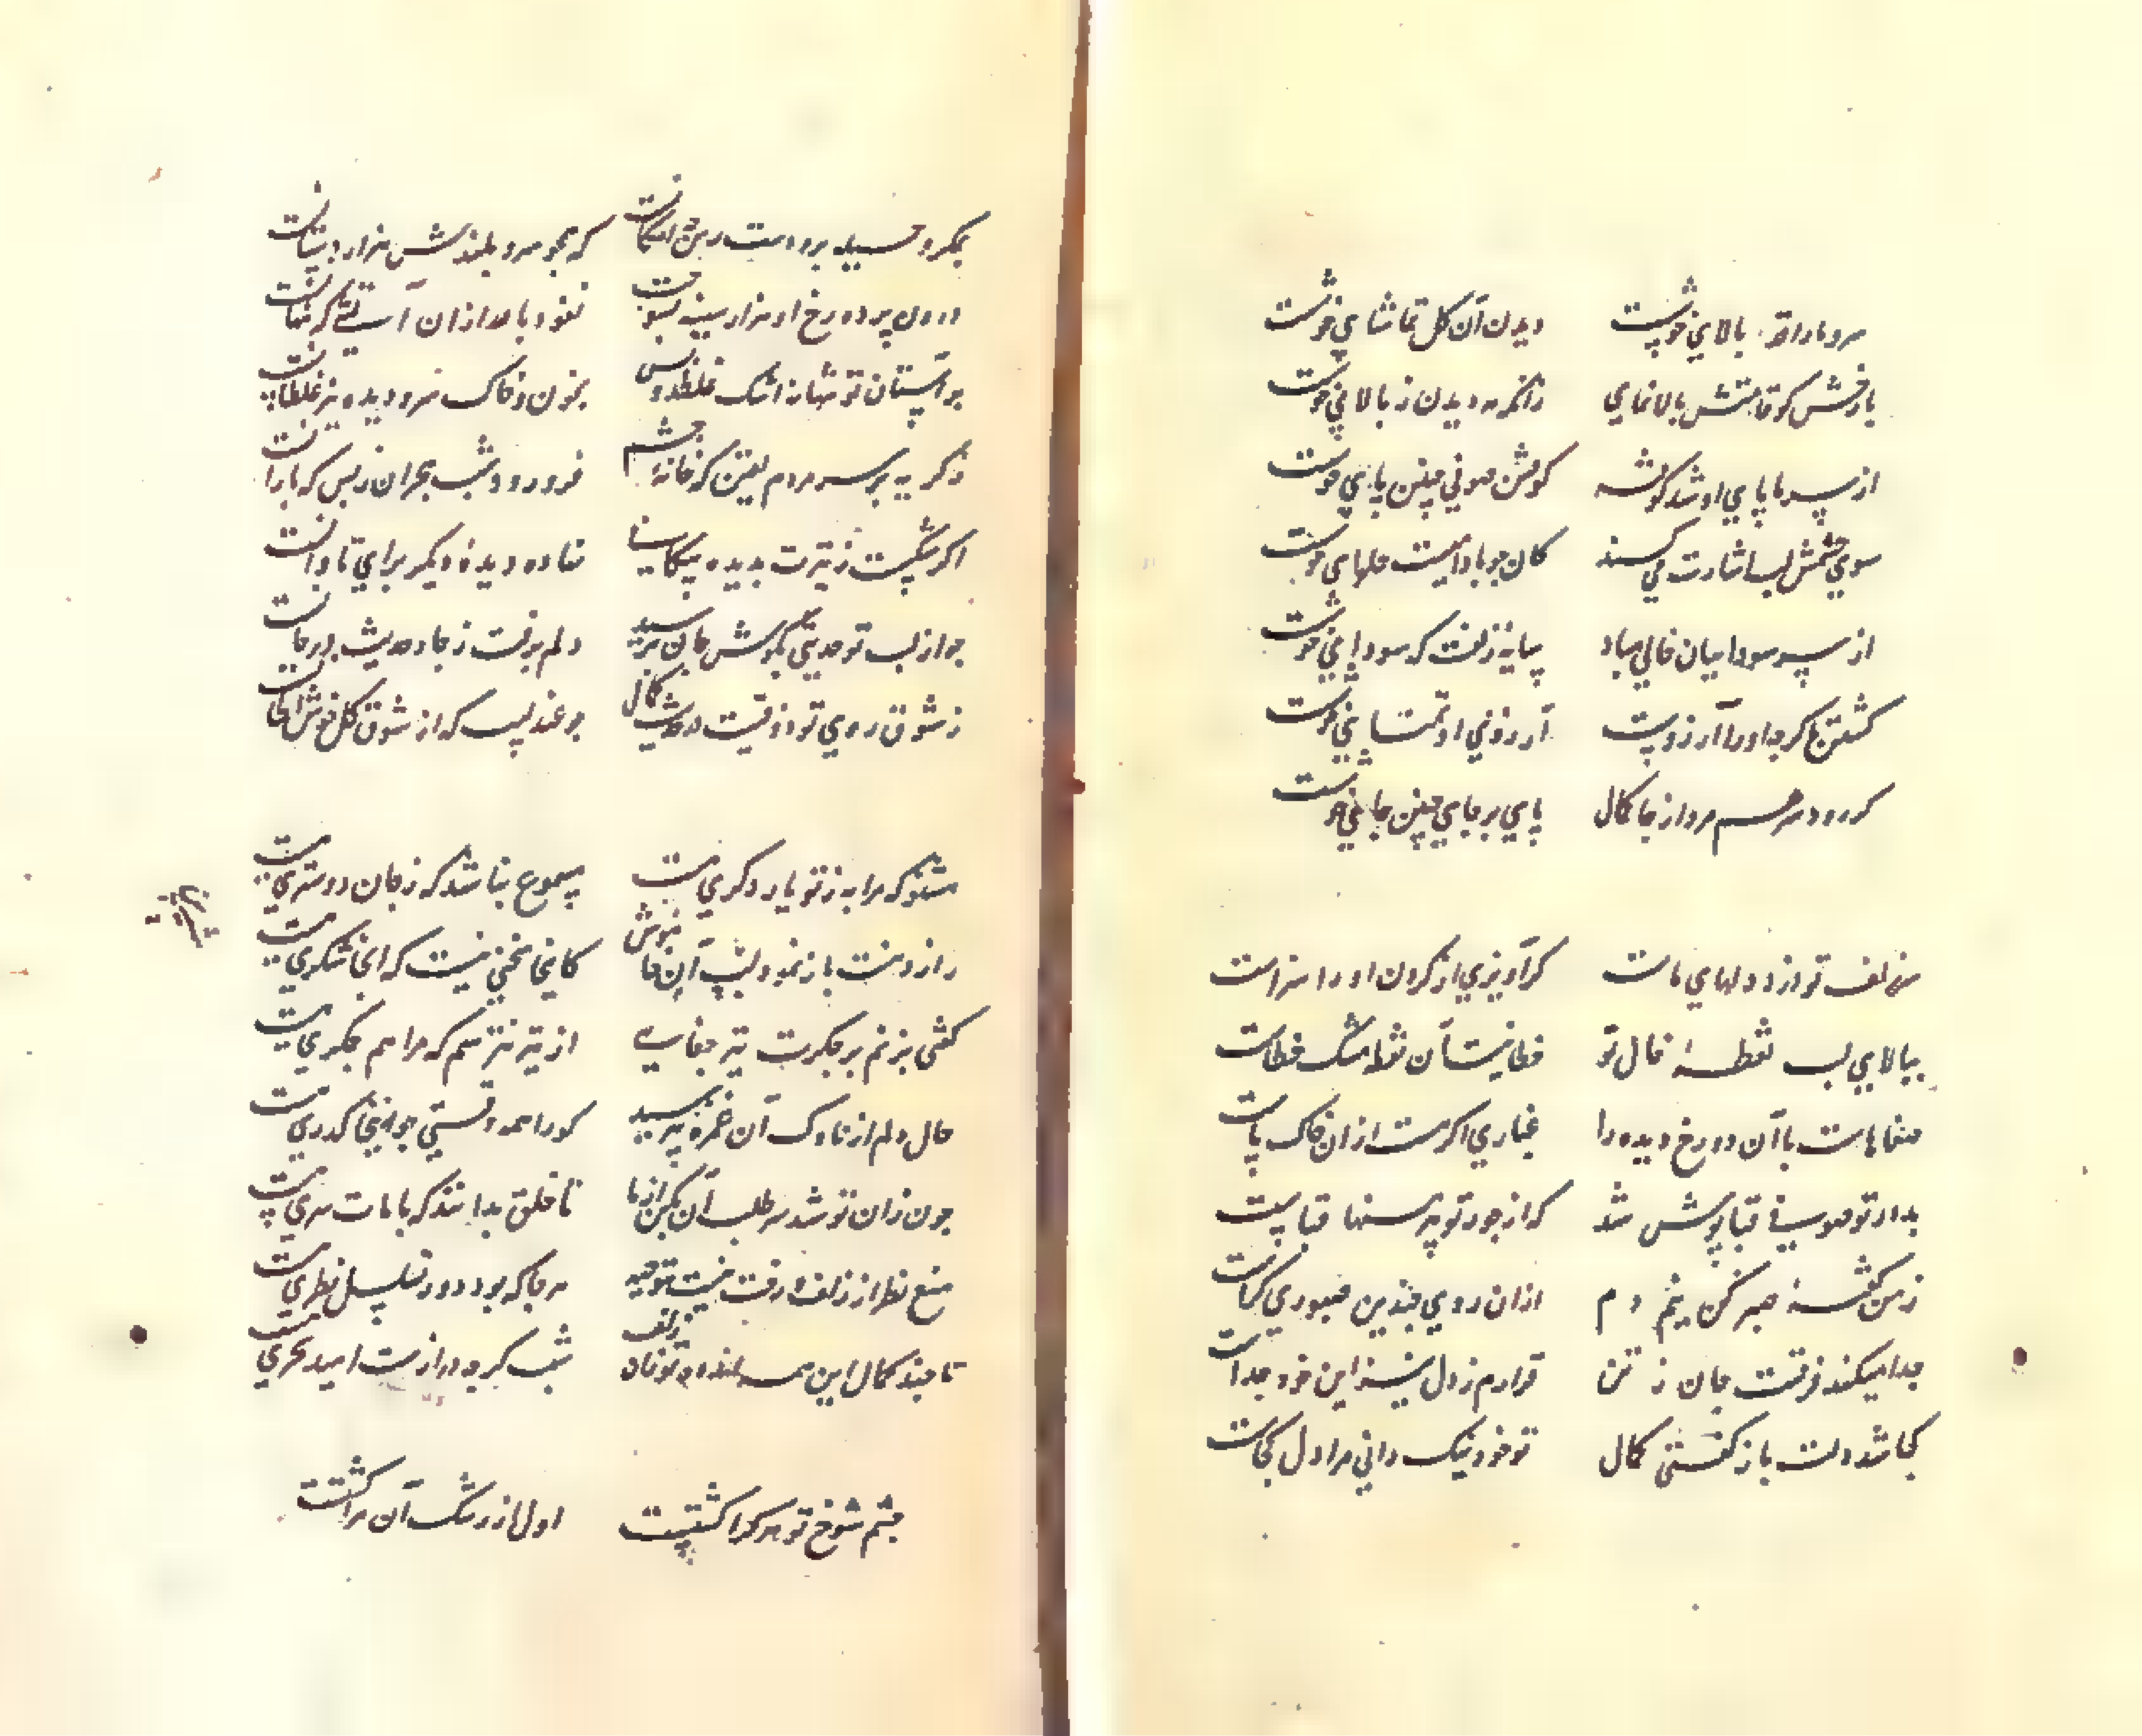 سرو ما را قد و بالای خوشست دیدن آن گل تماشای خوشست
با رخش کو قامتش بالا نمای زانکه مه دیدن ز بالای خوشست
از سر ما پای او شد گوشه گوشه صوفی چنین پای خوشست
سوی چشمش لب اشارت می کند کان چو بادامست حلوای خوشست
از سر سودائیان خالی مباد سایه زلفت که سودای خوشست
کشتن ما گرچه او را آرزوست آرزوی او تمنای خوشست
گر رود سر هم مرو از جا کمال پای بر جای چنین جای خوشست
سر زلف تو دزد دلهای ماست گر آویزی از گردن او را سزاست
ببالای لب نقطه خال تو خطا نیست آن نقطه مشک خطاست
صفاهاست با آن دو رخ دیده را غباری اگر هست ازان خاک پاست
بدور تو صوفی قباپوش شد که از جور تو پیرهنها قباست
ز من گفته صبر کن یک دم ازان روی چندین صبوری کراست
جدا میکند فرقت جان ز تن قرارم ز دل نیز این خود جداست
کجا شد دلت باز گفتی کمال تو خود نیک دانی مرا دل کجاست
که همچو سرو بلندش هزار دستانست
درون پرده رخ او هزار سینه بسوخت نعوذ بالله ازان آتشی که پنهانست
بر آستان تو تنها نه اشک غلطد و بس بخون و خاک سر و دیده نیز غلطانست
ز گریه بر سر مردم یقین که خانه چشم فرو رود شب هجران ز بس که بارانست
اگر شکست ز تیرت بدیده پیکانی نهاده دیده دیگر برای تاوانست
چو از لب تو حدیثی بگوش جان برسید دلم برفت ز جا و حدیث در جانست
ز شوق روی تو در وقتست کمال چو عندلیب که از شوق گل خوش الحانست
مشنو که مرا به ز تو یار دگری هست مسموع نباشد که ز جان دوستری هست
راز دهنت باز نمود لب آن خاموش کاینجا سخنی نیست که اینجا شکری هست
گفتی بزنم بر جگرت تیر جفایی از تیر نترسم که مرا هم جگری هست
حال دلم از ناوک آن غمزه بپرسید کو را همه وقتی چو به اینجا گذری هست
چون زان تو شد سر طلب آن بکن از ما تا خلق بدانند که با مات سری هست
منع نظر از زلف و رخت نیست موجه هر جا که بود دور و تسلسل نظری هست
تا چند کمال این همه اندوه تو زان زلف شب گرچه درازست امید سحری هست
چشم شوخ تو هر کرا کشتست اول از رشک آن مرا کشتست